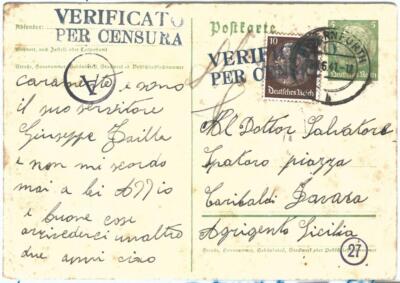 VERIFICATO
PER CENSURA
Absender:
Wohnort, auch Zustell- oder Leitpostamt
Straße, Hausnummer, Gebäudeteil, Stockwerk od. Postschließfachnummer
A
caramente e sono
il suo servitore
Giuseppe
e non mi scordo
mai a lei
e buone cose
arrivederci unaltro
due anni ciao
Postkarte
VERIF
PER C
10
Deutsches Reich
5
Deutsches Reich
Al Dottor Salvatore
Spataro piazza
Garibaldi
Agrigento Sicilia
Straße, Hausnummer, Gebäudeteil, Stockwerk oder Postschließfachnummer
27